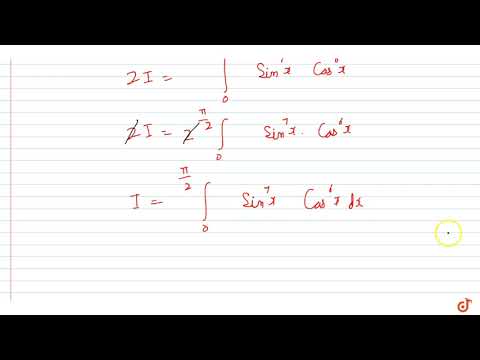 2I = ∫₀ Sin x Cos x
2I = 2 π/2 ∫₀ Sin⁷x . Cos⁶x
I = π/2 ∫₀ Sin⁷x Cos⁶x dx